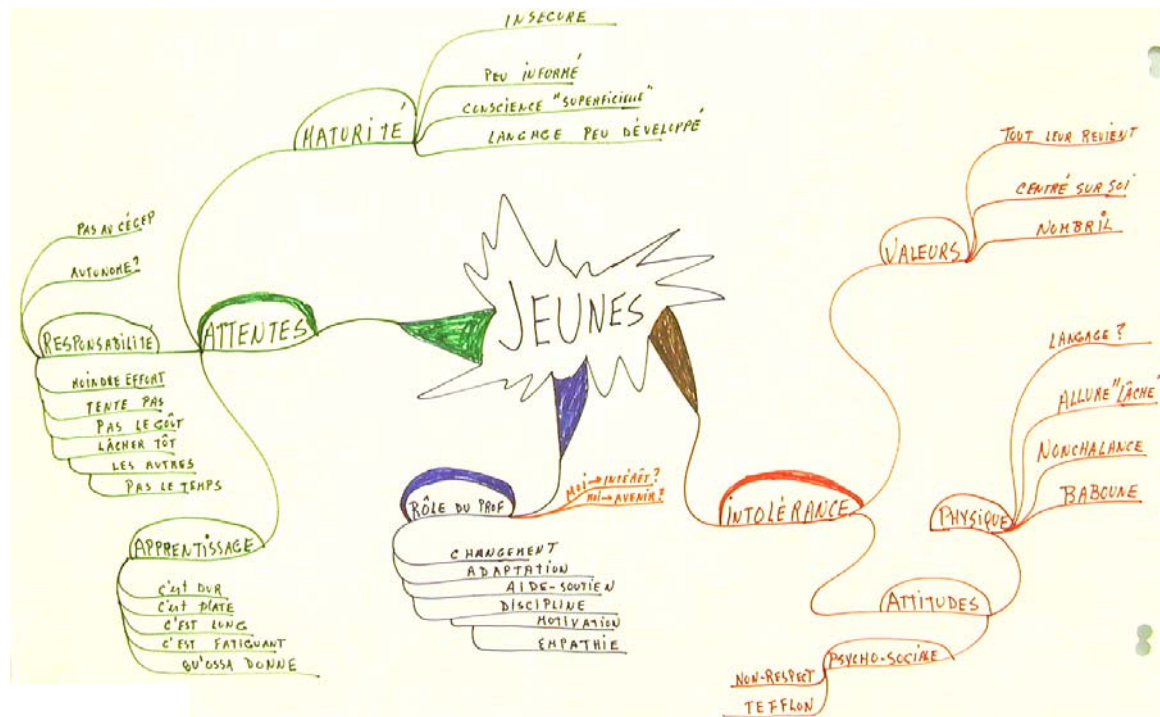 JEUNES
ATTENTES
MATURITÉ
INSÉCURE
PEU INFORMÉ
CONSCIENCE "SUPERFICIELLE"
LANGAGE PEU DÉVELOPPÉ
RESPONSABILITÉ
PAS AU CÉGEP
AUTONOME?
MOINDRE EFFORT
TENTE PAS
PAS LE GOÛT
LÂCHER TÔT
LES AUTRES
PAS LE TEMPS
APPRENTISSAGE
C'est DUR
C'est PLATE
C'EST LONG
C'EST FATIGUANT
QU'OSSA DONNE
RÔLE DU PROF
MOI→INTÉRÊT?
MOI→AVENIR?
CHANGEMENT
ADAPTATION
AIDE-SOUTIEN
DISCIPLINE
MOTIVATION
EMPATHIE
INTOLÉRANCE
VALEURS
TOUT LEUR REVIENT
CENTRÉ SUR SOI
NOMBRIL
ATTITUDES
PHYSIQUE
LANGAGE?
ALLURE "LÂCHE"
NONCHALANCE
BABOUNE
PSYCHO-SOCIALE
NON-RESPECT
TEFFLON